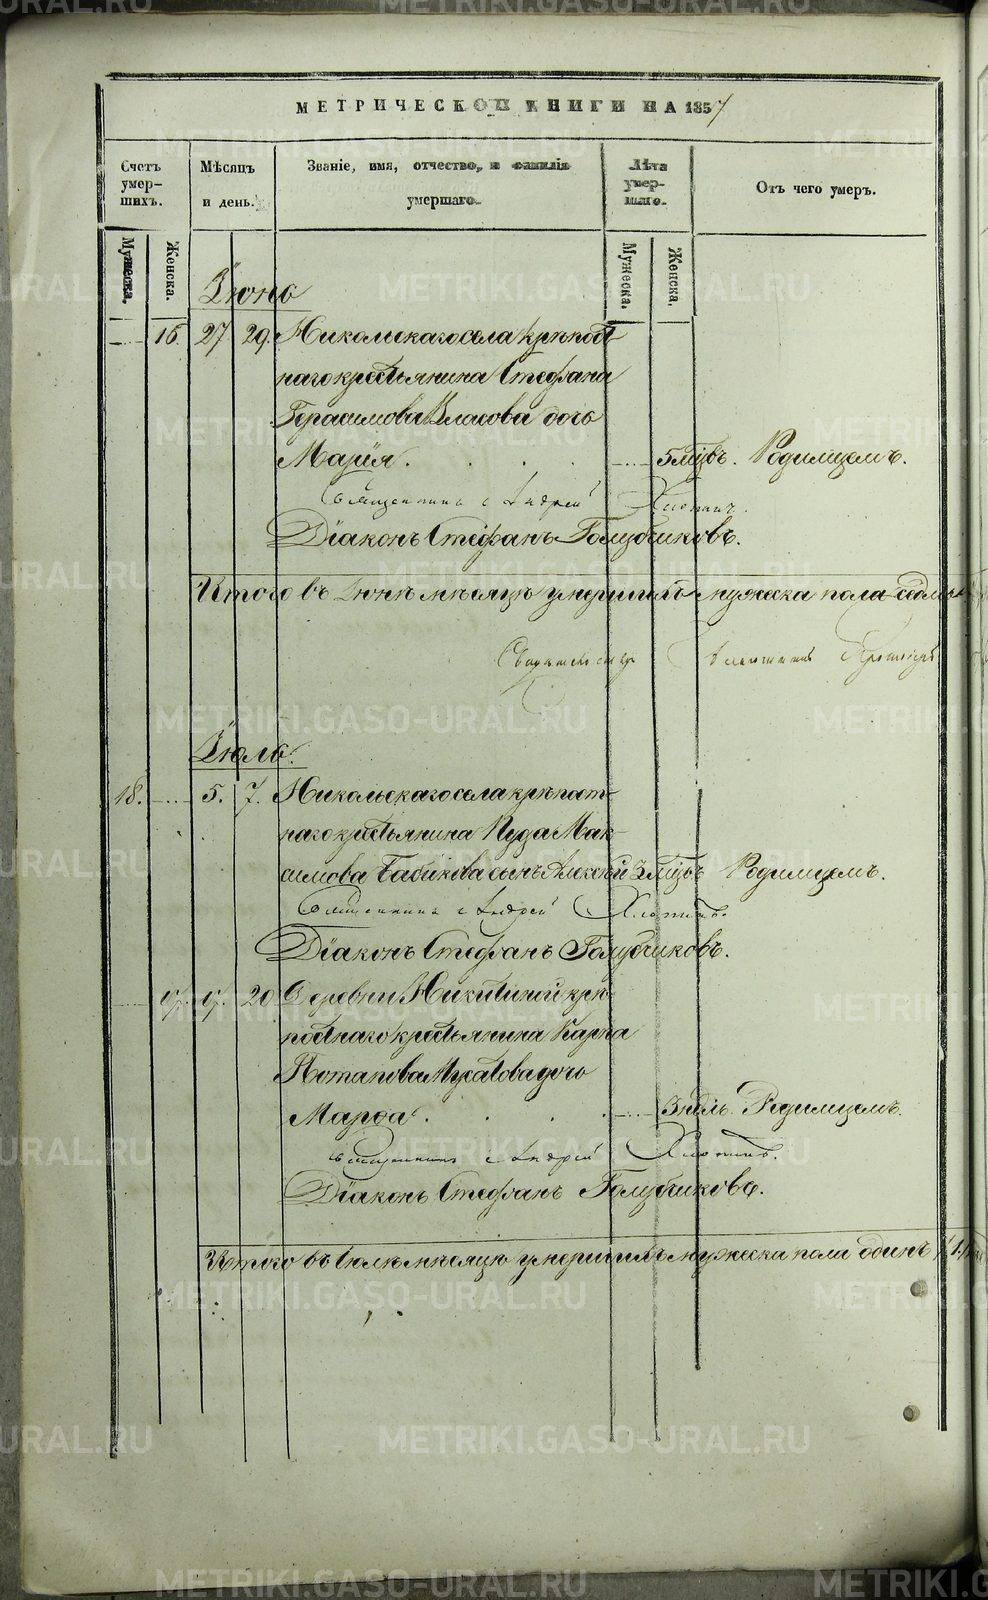 МЕТРИЧЕСКОЙ КНИГИ НА 1857
Счетъ умер-шихъ.
Мѣсяцъ и день.
Званіе, имя, отчество, и фамилія умершаго.
Лѣта умер-шаго.
Отъ чего умеръ.
Мужеска. Женска. Мужеска. Женска.
Іюнь
16 27 29. Никольскаго села крѣпост-
наго крестьянина Стефана
Герасимова Власова дочь
Марія. 5 мцвъ. Родимцемъ.
Священникъ Андрей
Діаконъ Стефанъ Голубчиковъ.
Итого въ Іюнѣ мѣсяцѣ умершихъ мужеска пола седмь
Іюль.
18. 5. 7. Никольскаго села крѣпост-
наго крестьянина Пуда Мак-
симова Бабикова сынъ Алексѣй 3 мцвъ Родимцемъ.
Священникъ Андрей
Діаконъ Стефанъ Голубчиковъ.
20 Деревни Никитиной крѣ-
постнаго крестьянина Карпа
Потапова Мусатова дочь
Марфа. 3 ндль. Родимцемъ.
Священникъ Андрей
Діаконъ Стефанъ Голубчиковъ.
Итого въ Іюлѣ мѣсяцѣ умершихъ мужеска пола одинъ
METRIKI.GASO-URAL.RU